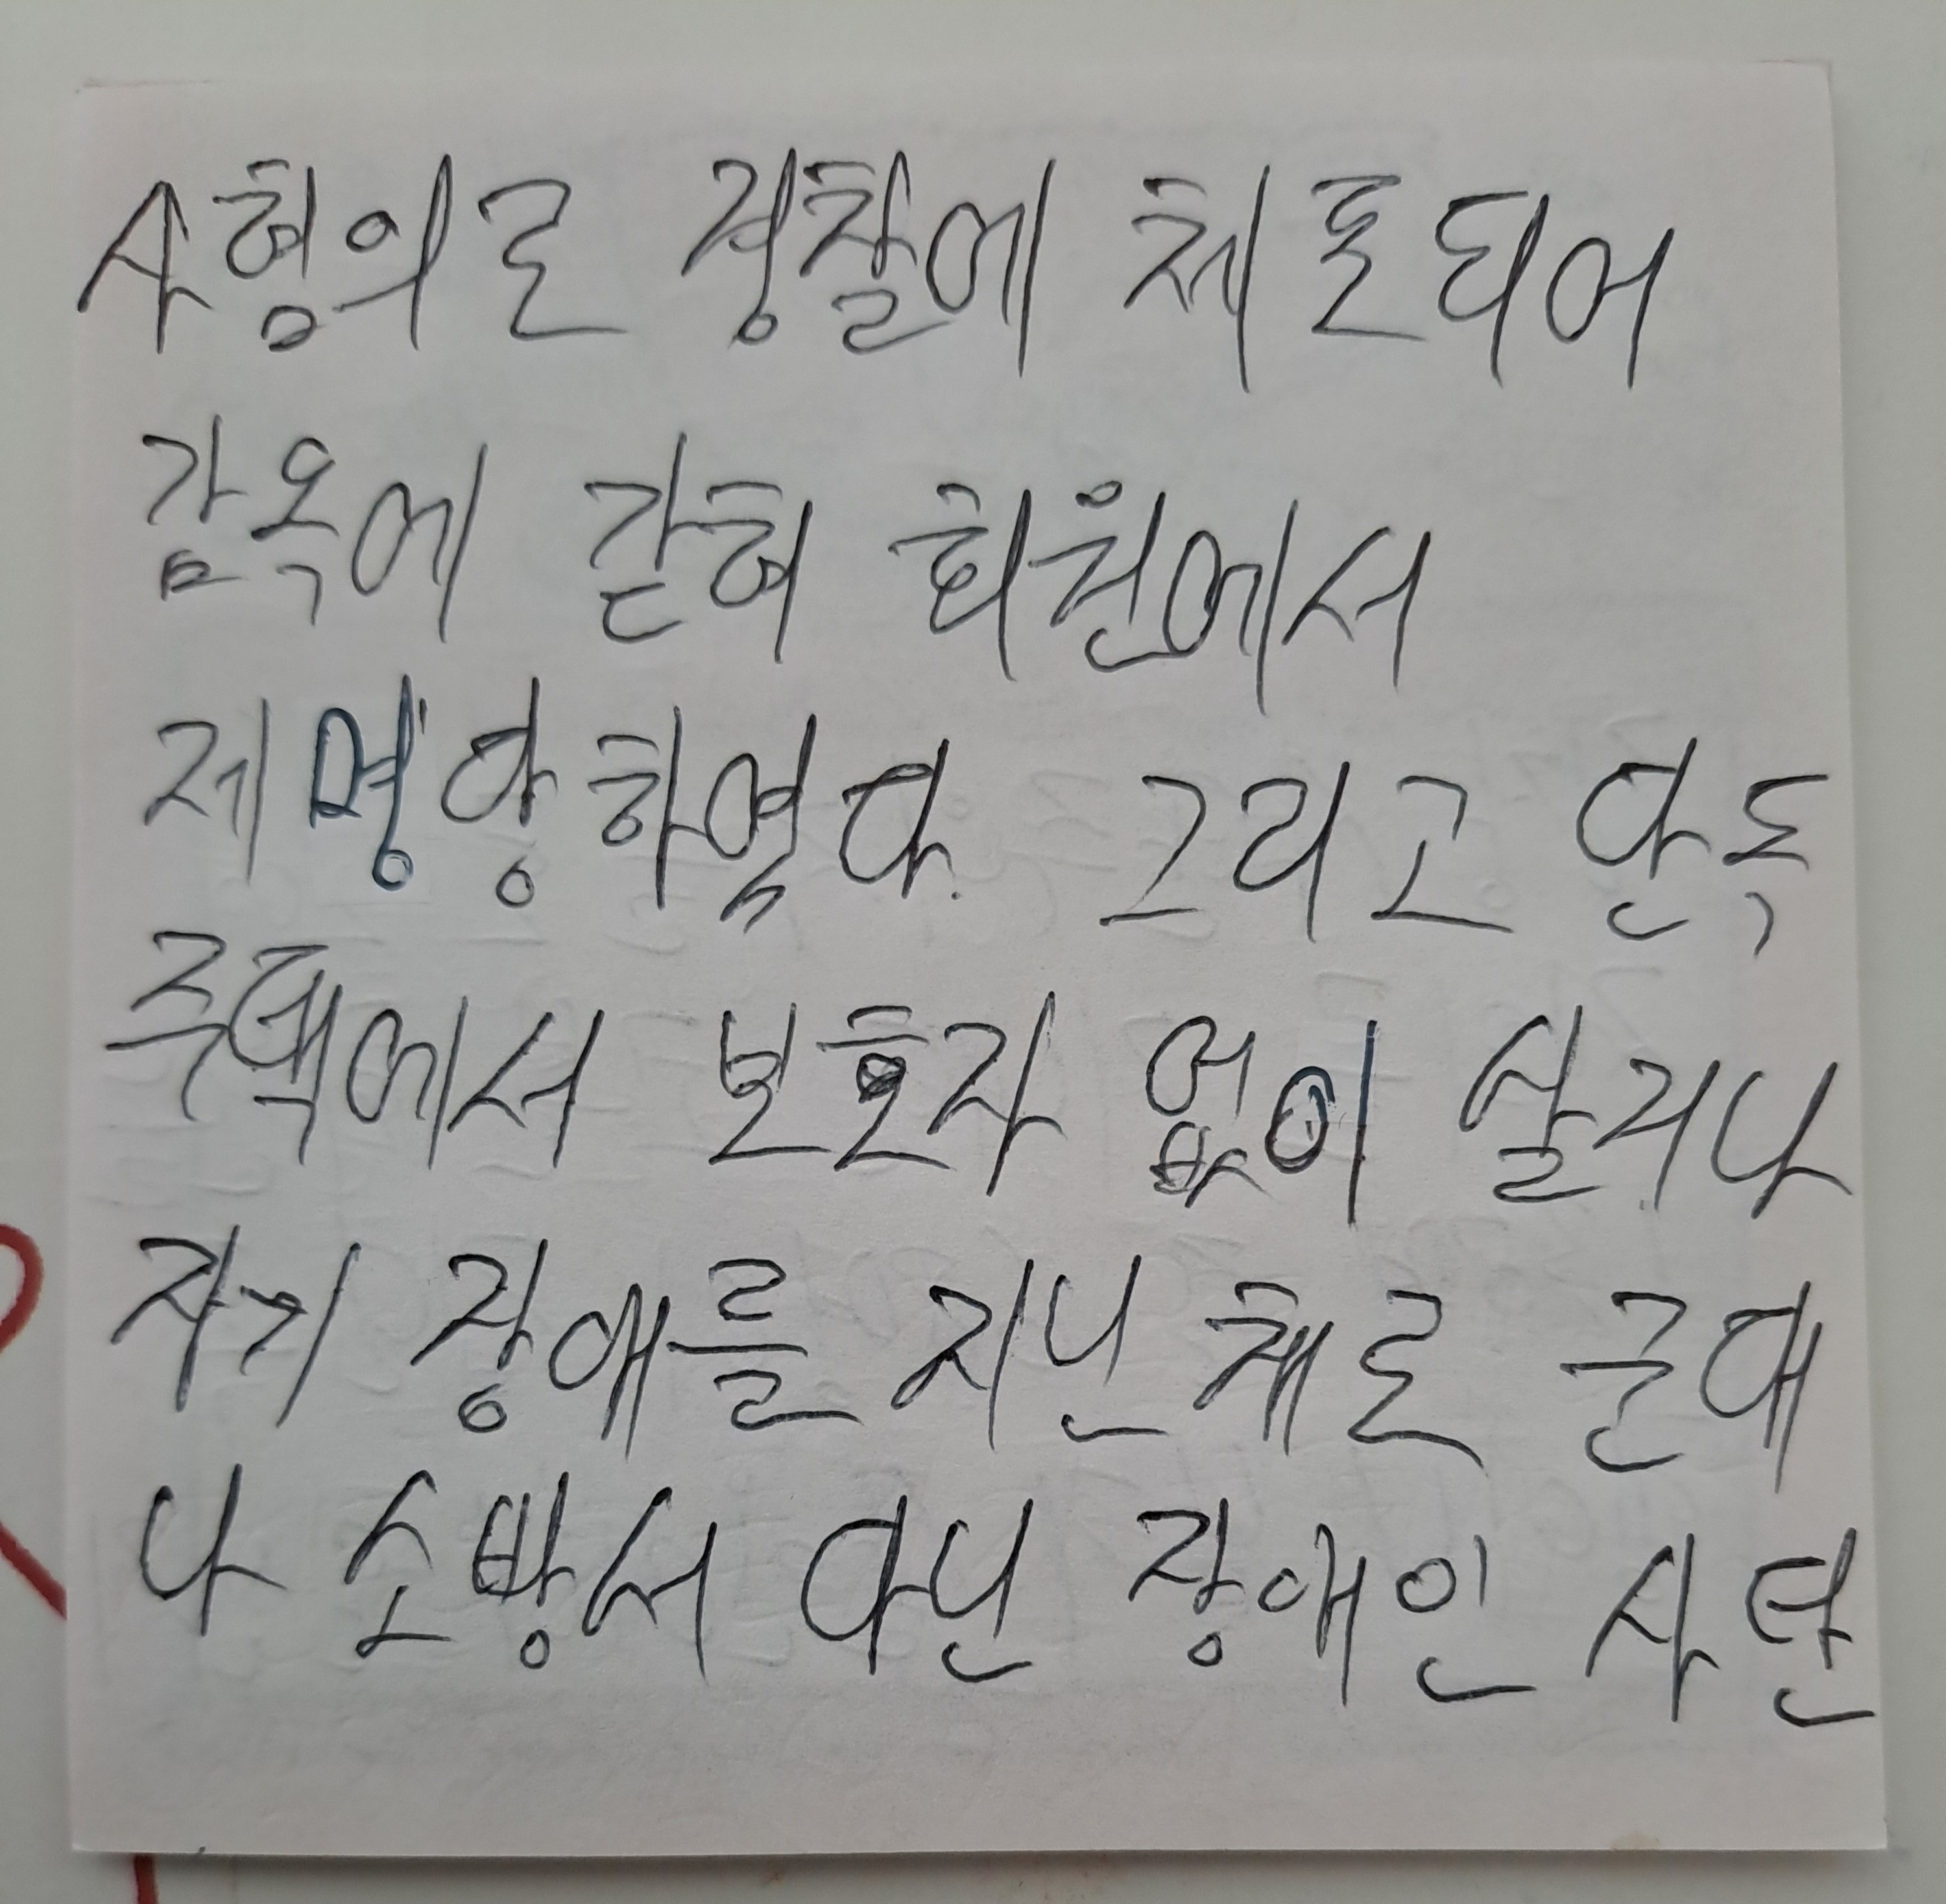 사형의로 경찰에 체포되어
감옥에 갇혀 회원에서
제명당하였다. 그리고 단독
주택에서 보호자 없이 살거나
자기 장애를 지닌채로 군대
나 소방서 다닌 장애인 사단